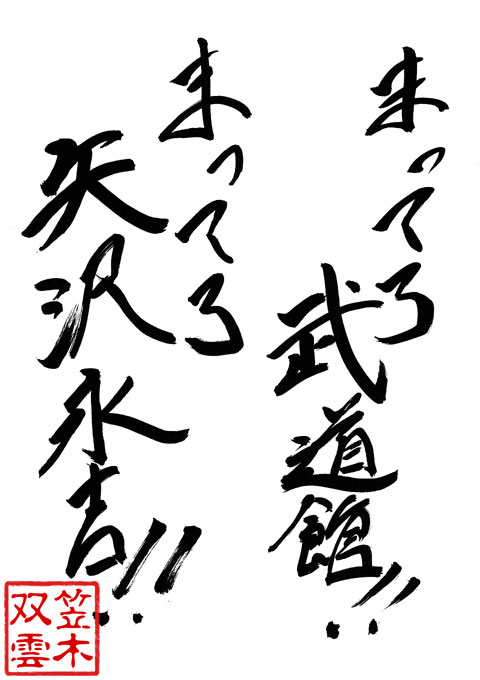 まってろ
武道館!!
まってろ
矢沢永吉!!
笠木
双雲